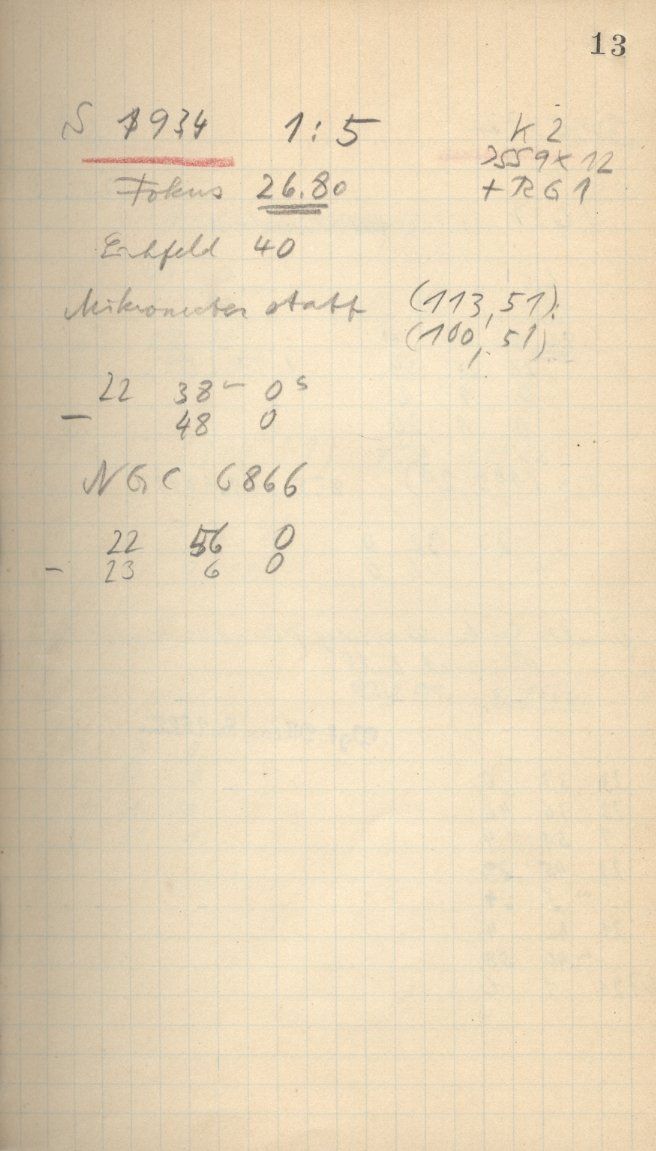 13
S 1934 1:5
K 2
2559 x 12
+ RG 1
Fokus 26.80
Eichfeld 40
Mikrometer statt (113,51):
(100, 51)
22 38 – 0 s
– 48 0
NGC 6866
22 56 0
– 23 6 0